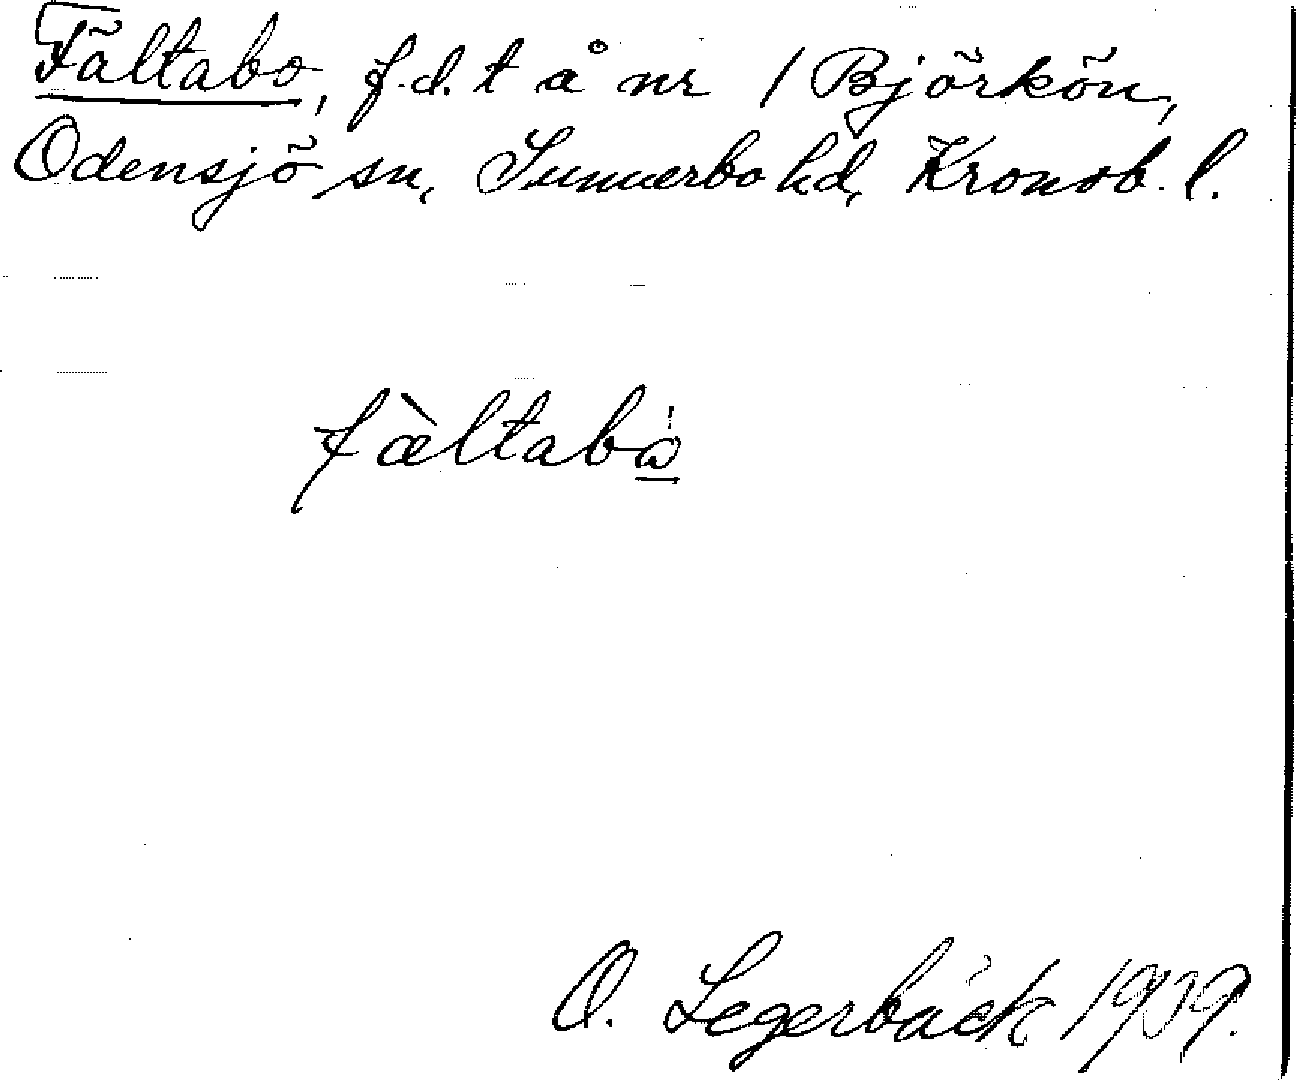 Fältabo, f.d. t å nr 1 Björkön,
Odensjö sn, Sunnerbo hd, Kronob. l.
fàltabω
O. Legerbäck 1939.